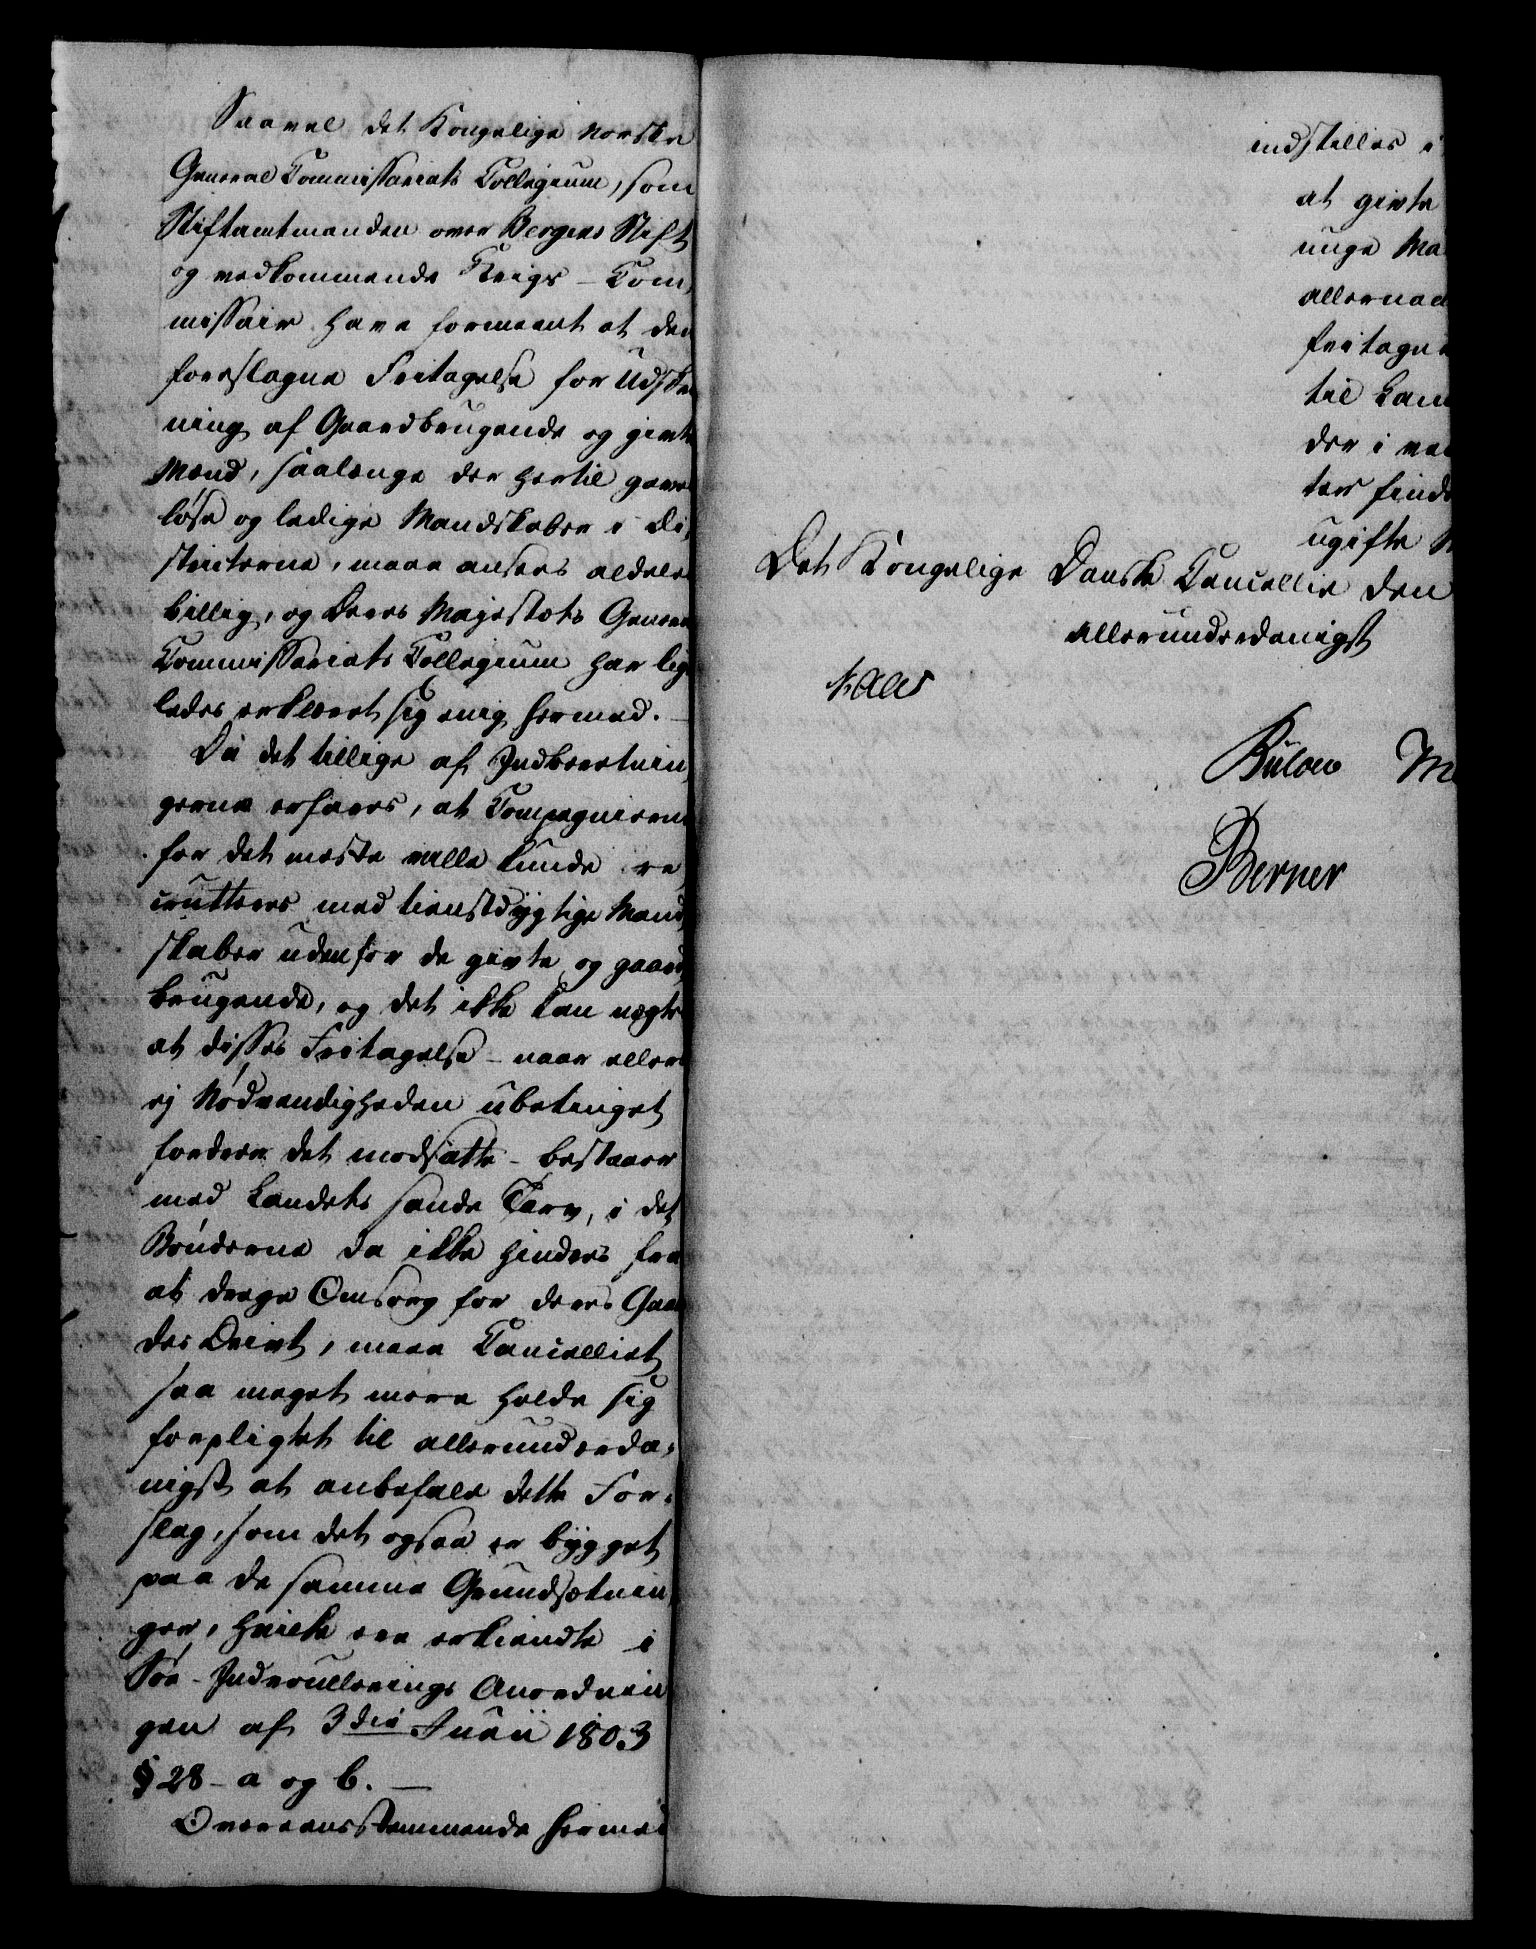 Saavel det Kongelige Norske
General Commissariats Collegium, som
Stiftamtmanden over Bergens Stift
og vedkommende Krigs-Com
missair have formeent at den
foreslagne Fritagelse for Udskr
ning af Gaardbrugende og givte
Mænd, saalænge der hertil gives
løse og ledige Mandskaber i Di
stricterne, maae ansees aldeles
billig, og Deres Majestæts General
Commissariats Collegium har lige
ledes erklæret sig enig hermed. —
Da det tillige af Indberetnin
gerne erfares, at Compagnierne
for det meste ville kunde re
cruteres med tienstdygtige Mand
skaber udenfor de givte og gaard
brugende, og det ikke kan nægtes
at disses Fritagelse - naar ellers
ej Nødvendigheden ubetinget
fordrer det modsatte - bestaaer
med Landets sande Tarv, i det
Bønderne da ikke hindres fra
at drage Omsorg for deres Gaar
des Drivt, maae Cancelliet
saa meget mere holde sig
forpligtet til allerunderda-
nigst at anbefale dette For-
slag, som det ogsaa er bygget
paa de samme Grundsætnin
ger, hvilke ere erkiendte i
Søe-Indroullerings Anordnin
gen af 3die Junii 1803
§ 28 - a og b. —
Overeensstemmende hermed
indstilles i
at givte
unge Ma
allernaad
fritagne
til Lan
der i ve
ter finde
ugifte M
Det Kongelige Danske Cancellie den
allerunderdanigst
Kaas
Bülow M
Berner